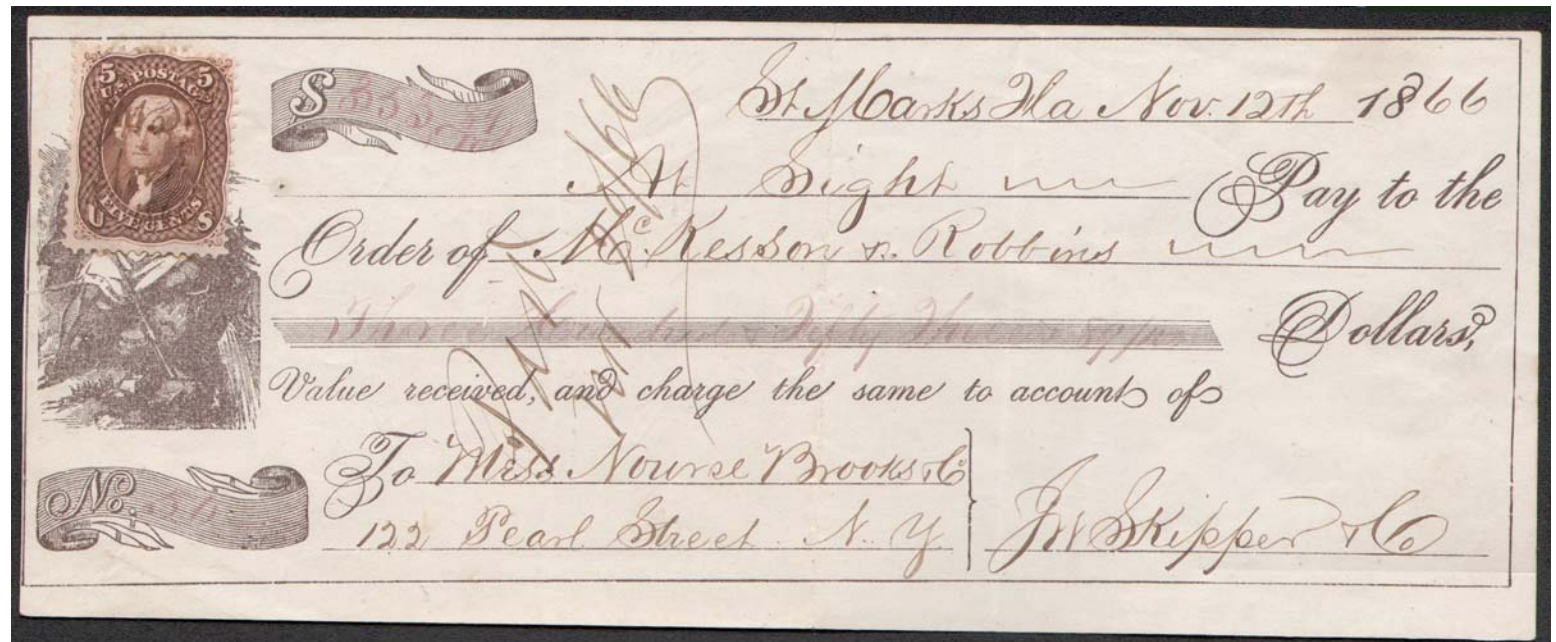 5 U.S. POSTAGE 5
U FIVE CENTS S
$ 353
St Marks Fla Nov. 12th 1866
At Sight Pay to the
Order of McKesson & Robbins
Three Hundred & Fifty Three 89/100 Dollars,
Value received, and charge the same to account of
To Mess Nourse Brooks & Co
122 Pearl Street N. Y
JW Skipper & Co
No.